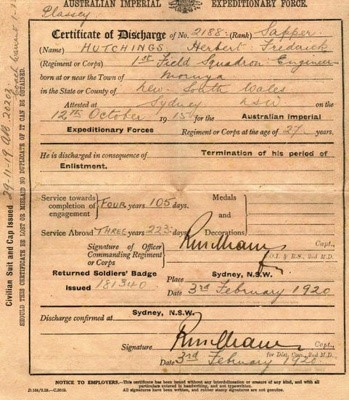 Plassey
AUSTRALIAN IMPERIAL EXPEDITIONARY FORCE.
Certificate of Discharge of No. 2158 (Rank) Sapper
(Name) HUTCHINGS Herbert Frederick
(Regiment or Corps) 1st Field Squadron Engineers
born at or near the Town of Moruya
in the State or County of New South Wales
Attested at Sydney NSW on the
12th October 1915 for the Australian Imperial
Expeditionary Forces Regiment or Corps at the age of 27 years.
He is discharged in consequence of Termination of his period of
Enlistment.
Service towards completion of engagement FOUR years 105 days.
Medals and Decorations
Service Abroad THREE years 223 days.
Signature of Officer Commanding Regiment or Corps
Capt.,
Returned Soldiers' Badge
Issued 181340
Place Sydney, N.S.W.
Date 3rd February 1920
Discharge confirmed at Sydney, N.S.W.
Signature Capt.,
Date 3rd February 1920
NOTICE TO EMPLOYERS.—This certificate has been issued without any interlineation or erasure of any kind, and with all
particulars entered in handwriting, and not typewritten.
All signatures have been written, and rubber stamp signatures are not genuine.
Civilian Suit and Cap issued 29-11-19
SHOULD THIS CERTIFICATE BE LOST OR MISLAID NO DUPLICATE OF IT CAN BE OBTAINED.